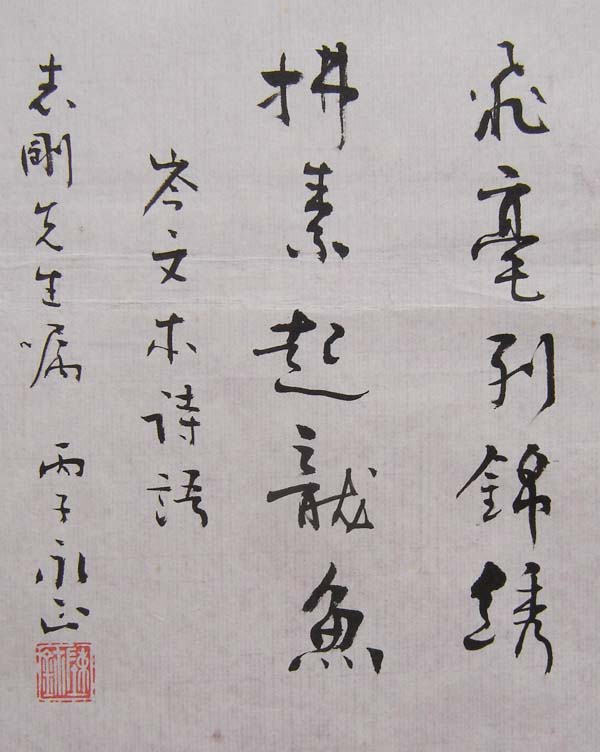 飛毫列錦繡
拂素起龍魚
岑文本詩語
志剛先生嘱 丙子永正